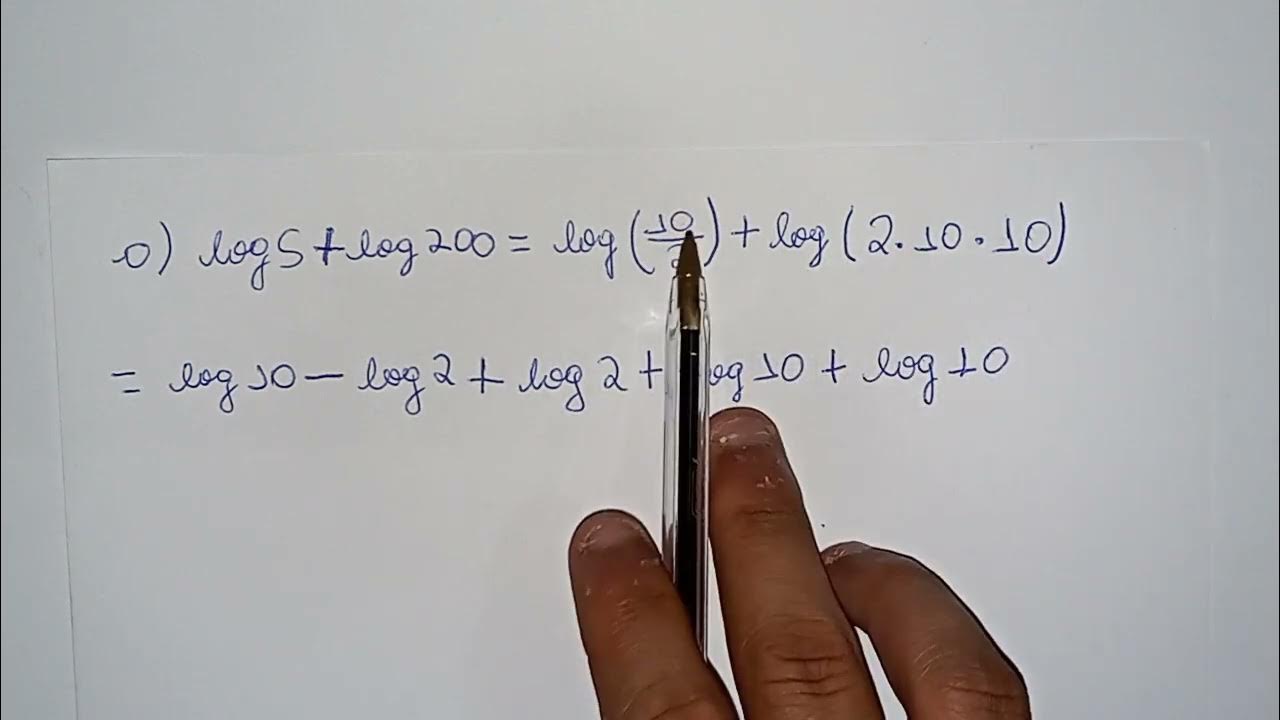 o) log 5 + log 200 = log (10/2) + log (2 · 10 · 10)
= log 10 – log 2 + log 2 + log 10 + log 10